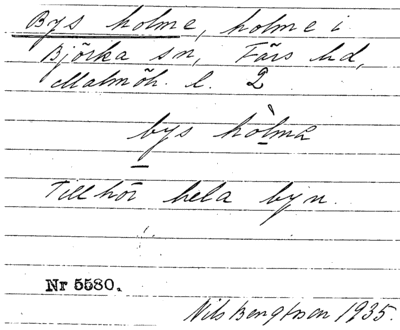 Bys holme, holme i
Björka sn, Färs hd,
Malmöh. l. 2
bys hòlmå
Tillhör hela byn.
Nr 5580.
Nils Bengtsson 1935.